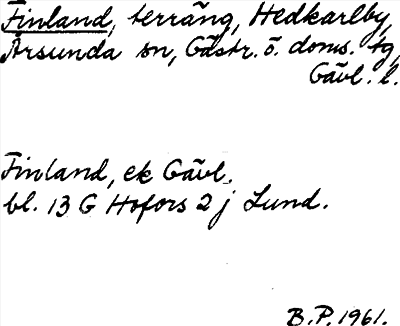 Finland, terräng, Hedkarlby,
Årsunda sn, Gästr. ö. doms. tg,
Gävl. l.
Finland, ek Gävl.
bl. 13 G Hofors 2 j Lund.
B.P. 1961.